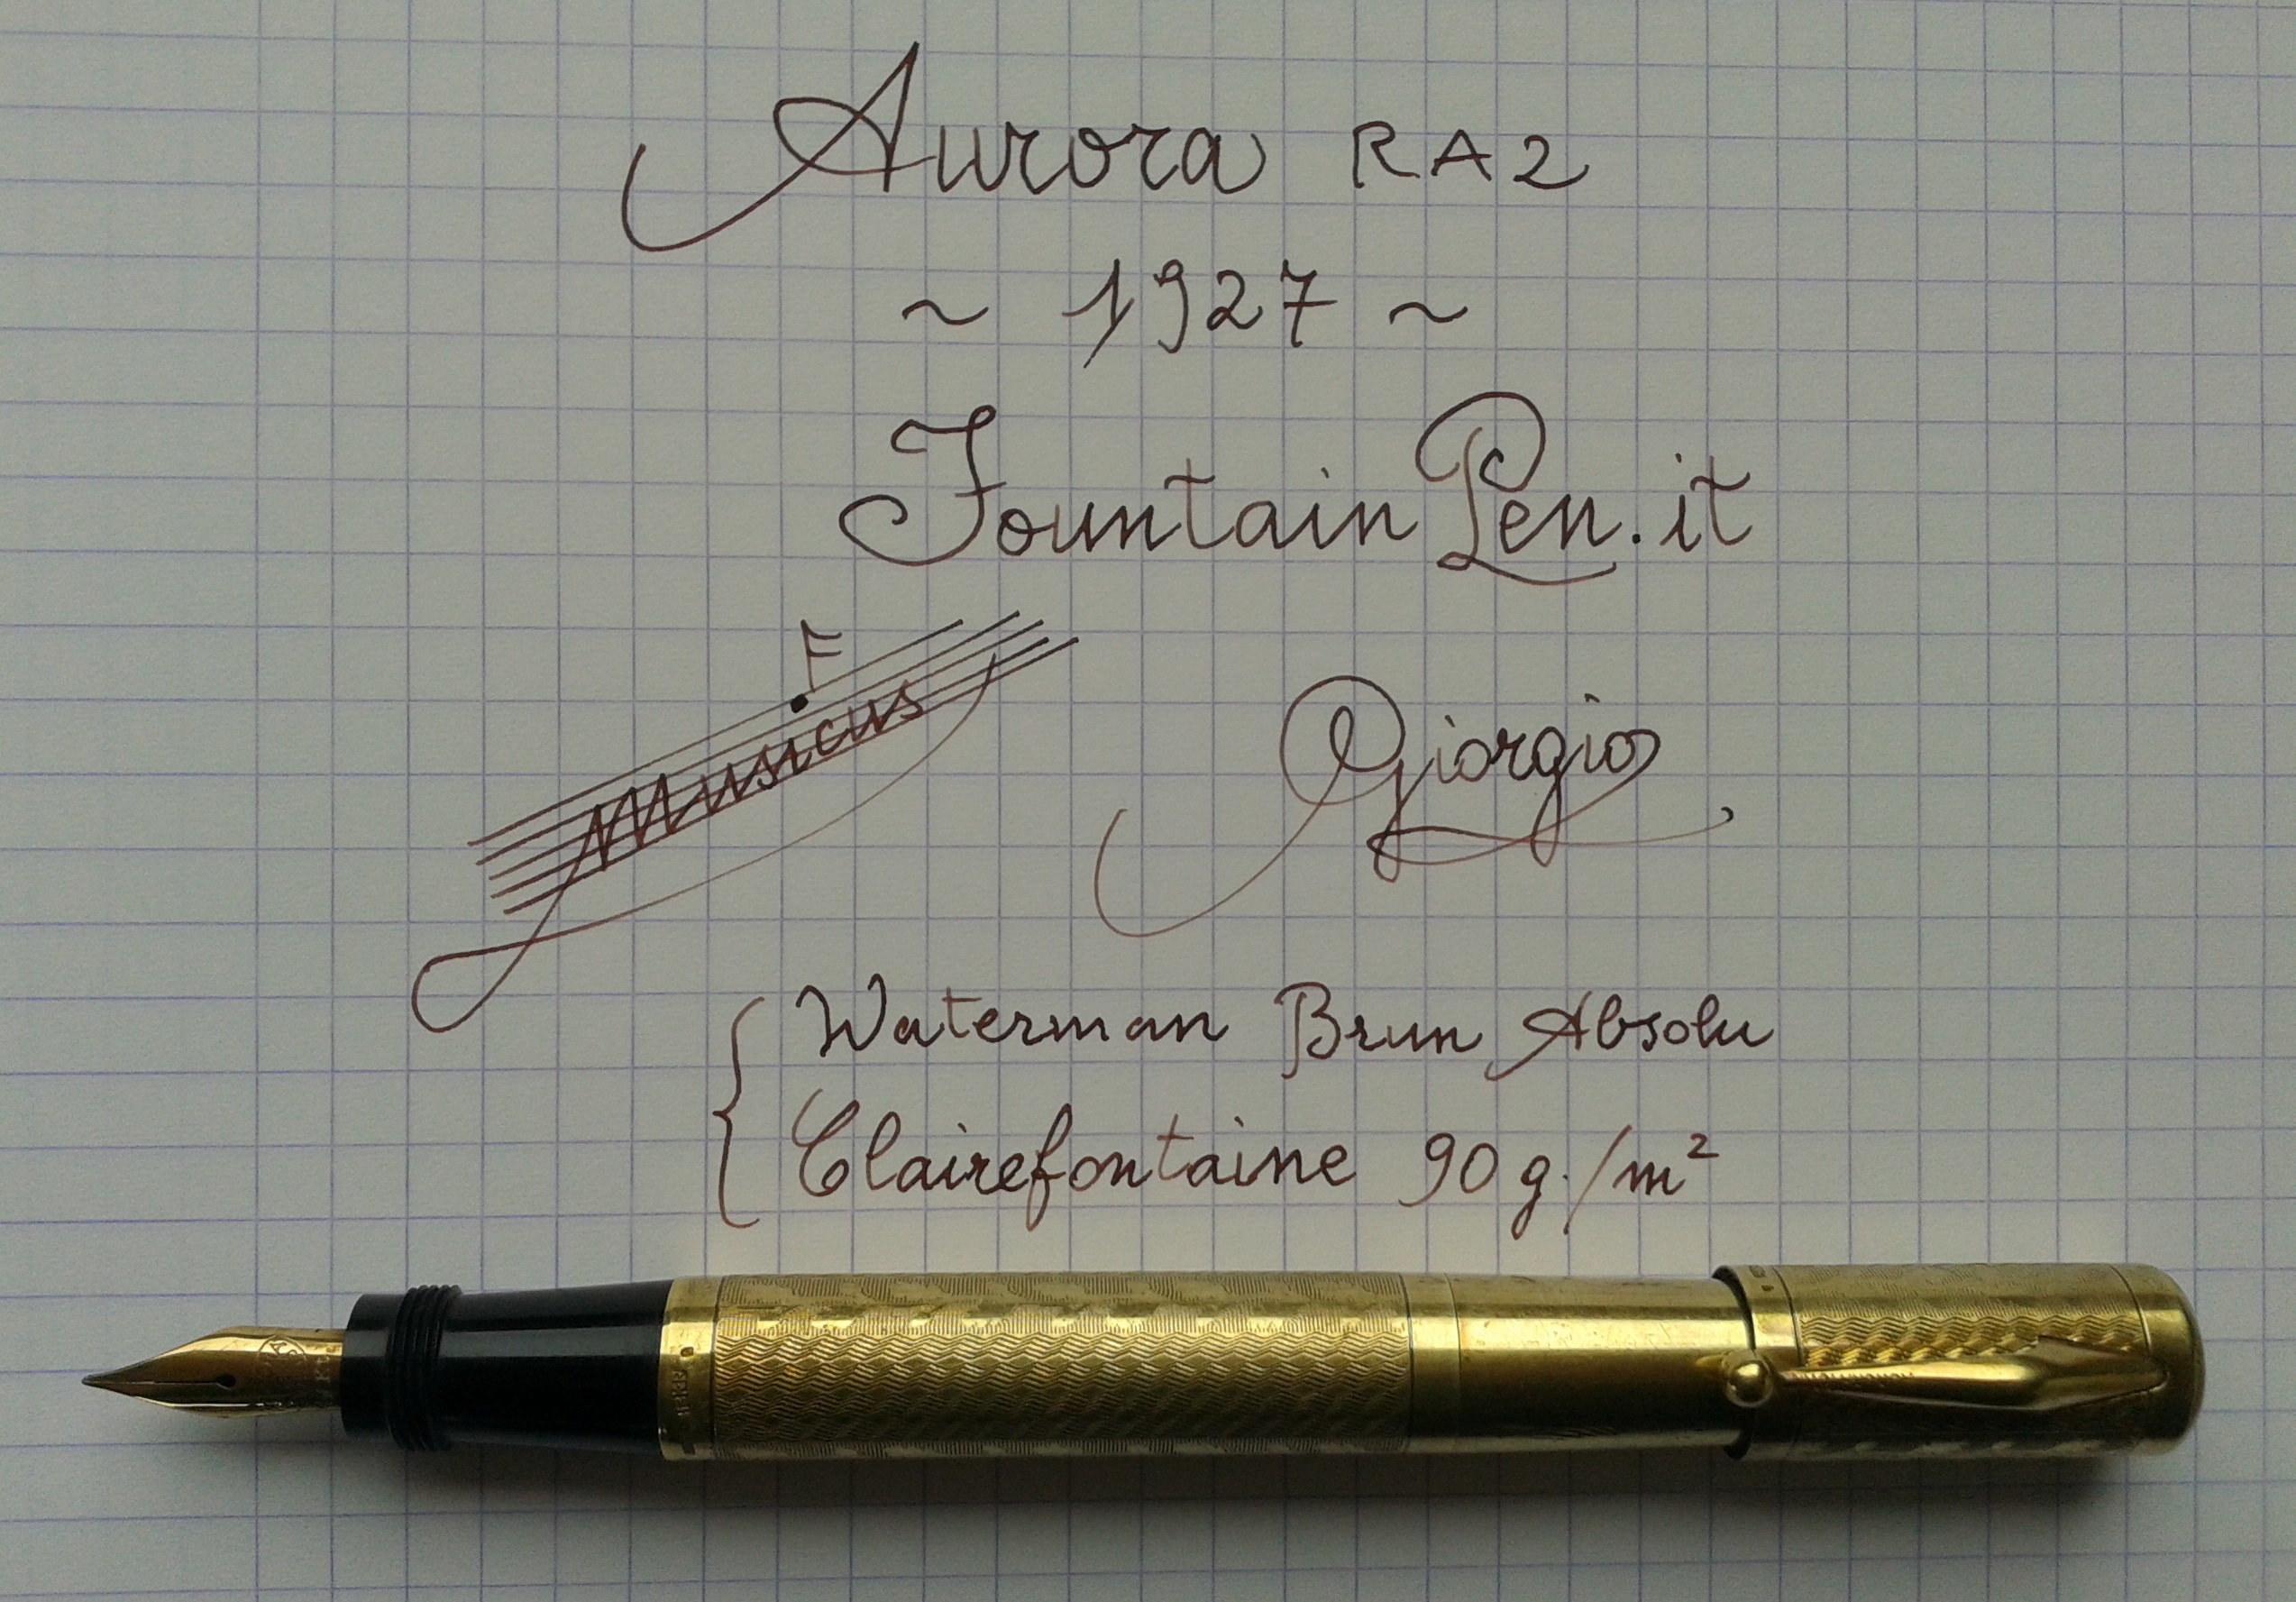 Aurora RA2
~ 1927 ~
FountainPen.it
F
Musicus
Giorgio
Waterman Brun Absolu
Clairefontaine 90 g./m²